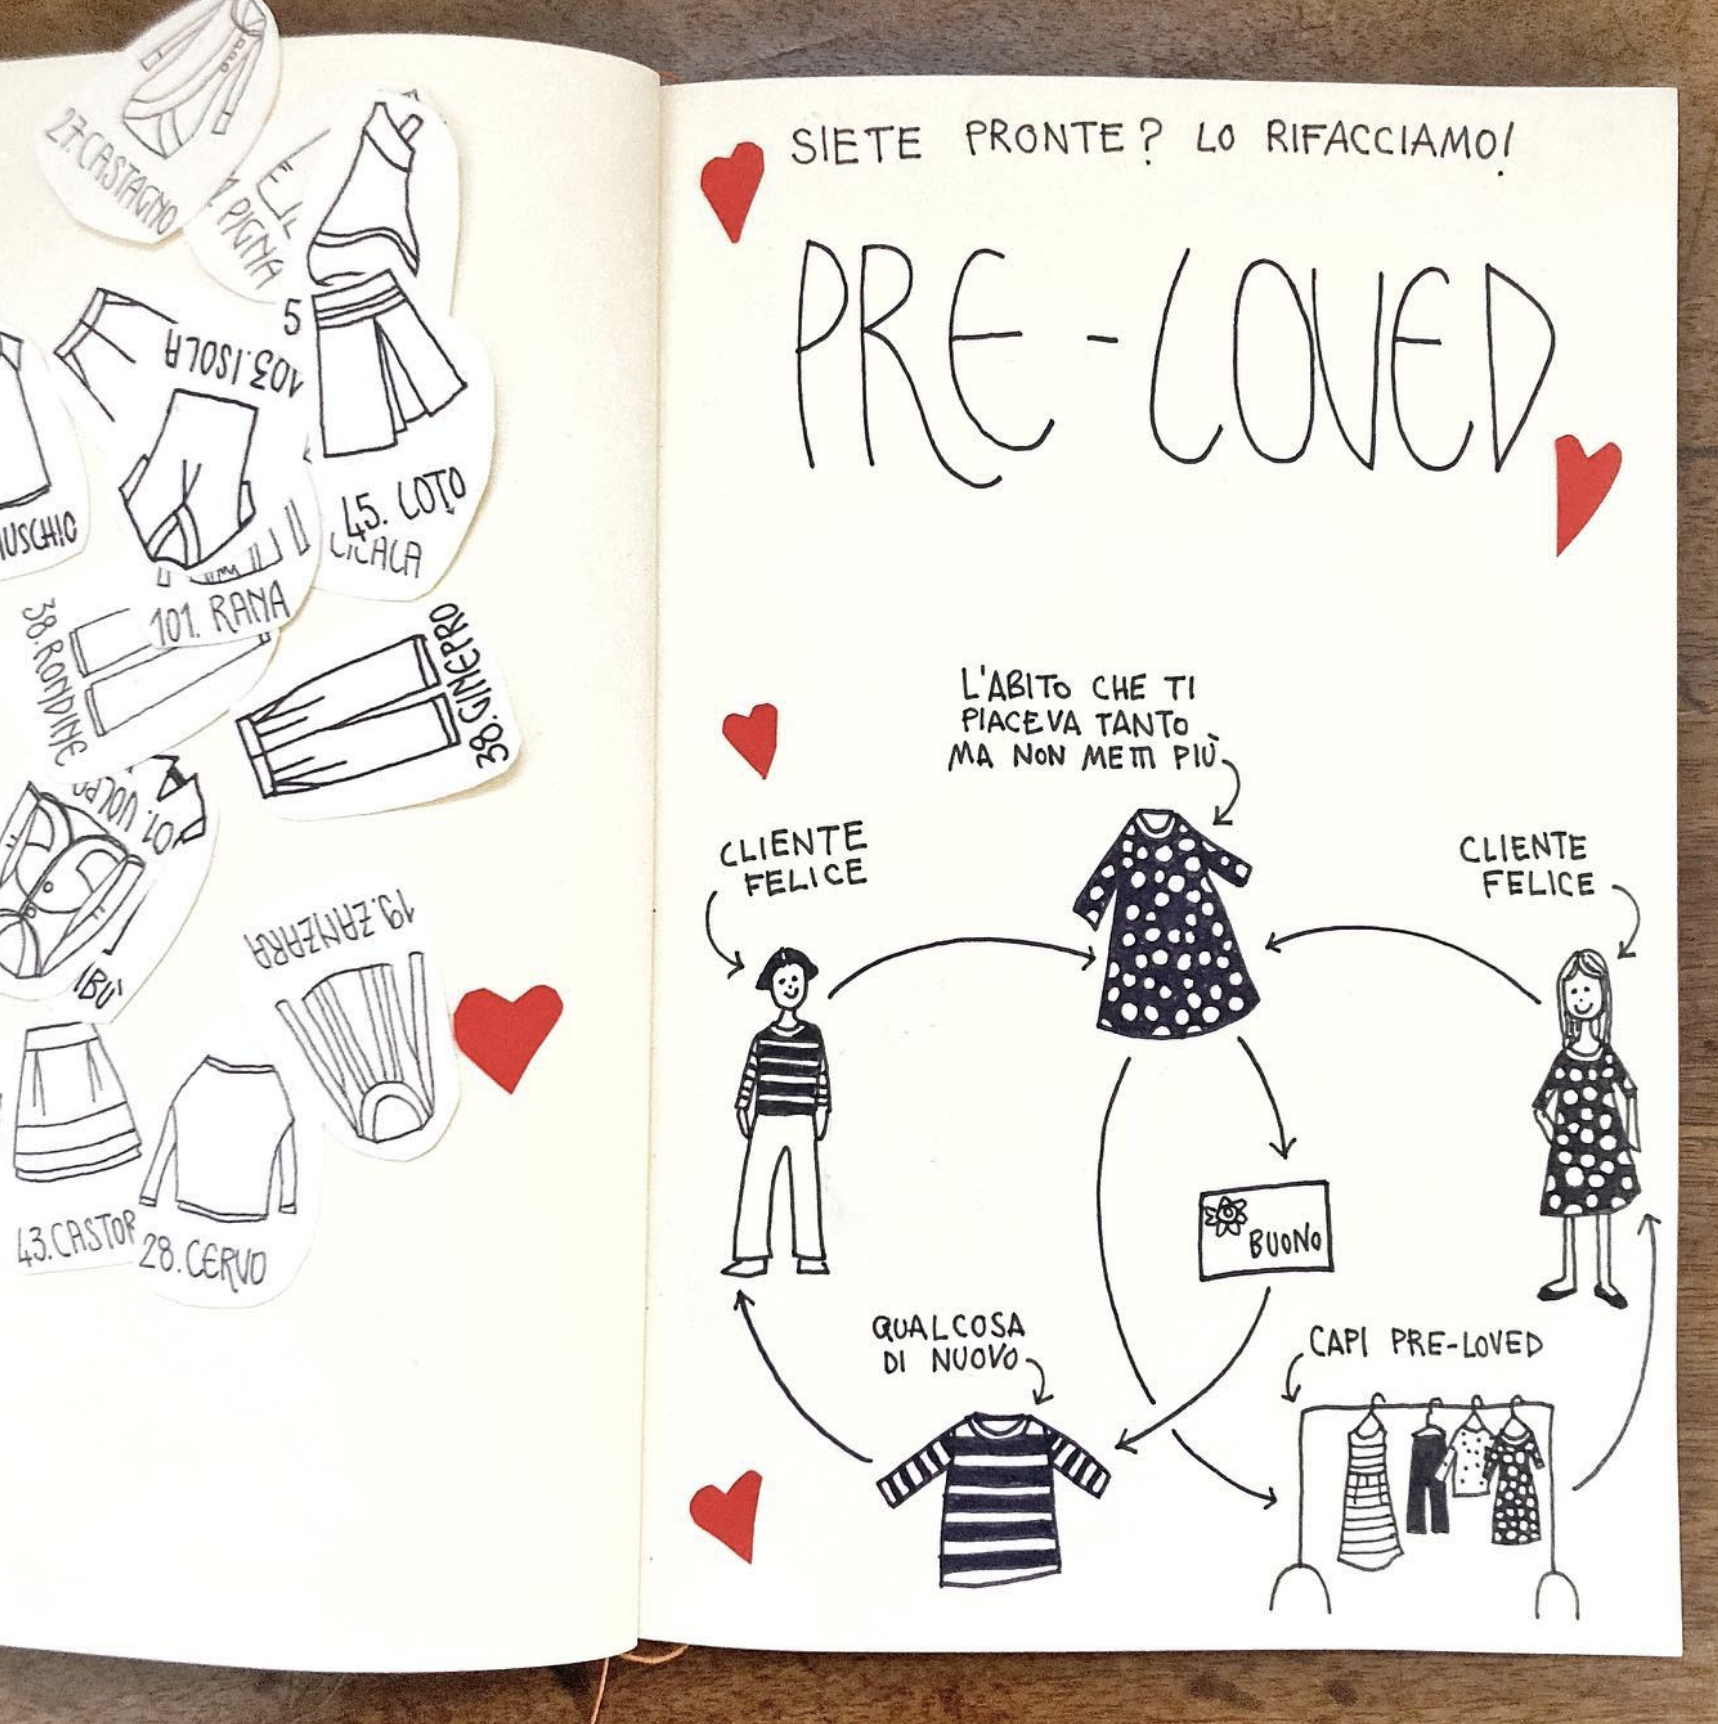 27.CASTAGNO
PIGNA
5
103.ISOLA
45. LOTO
CICALA
USCHIO
101. RANA
38.RONDINE
38.GINEPRO
01. VOLPE
IBÙ
19.ZANZARA
43.CASTOR
28.CERVO
SIETE PRONTE? LO RIFACCIAMO!
PRE-LOVED
L'ABITO CHE TI
PIACEVA TANTO
MA NON METTI PIÙ
CLIENTE
FELICE
CLIENTE
FELICE
BUONO
QUALCOSA
DI NUOVO
CAPI PRE-LOVED